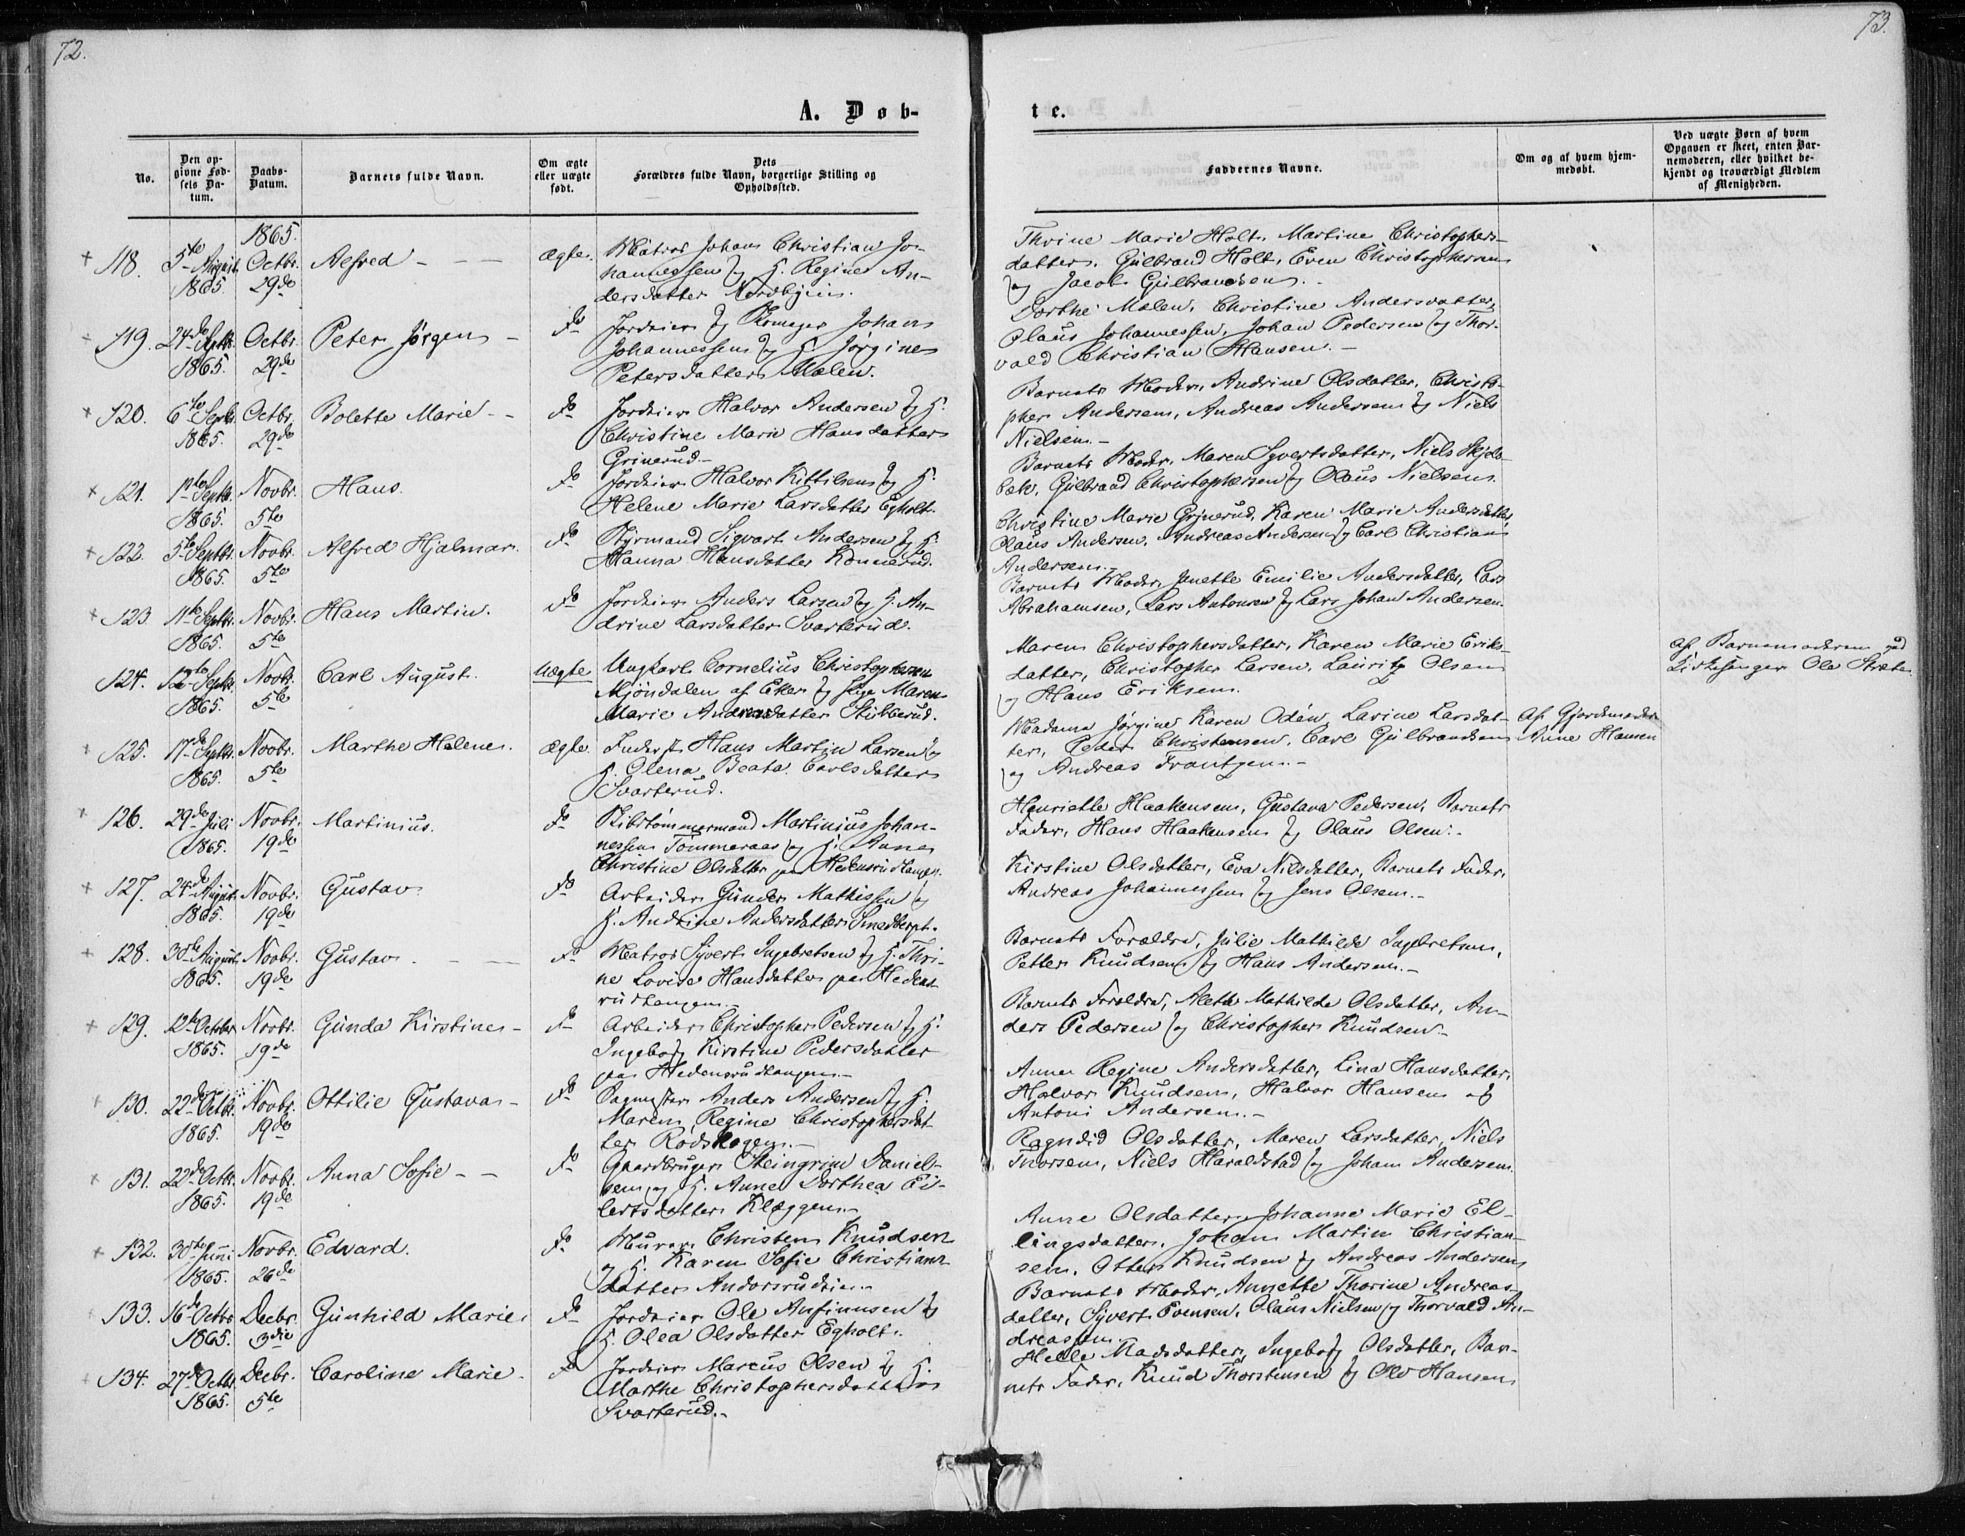 72.
73.
A. Døb-
te.
No.
Den op-
givne Fød-
sels Da-
tum.
Daabs-
Datum.
Barnets fulde Navn.
Om ægte
eller uægte
født.
Dets
Forældres fulde Navn, borgerlige Stilling og
Opholdssted.
Faddernes Navne.
Om og af hvem hjem-
medøbt.
Ved uægte Børn af hvem
Opgaven er skeet, enten Bar-
nemoderen, eller hvilket be-
kjendt og troværdigt Medlem
af Menigheden.
1865.
118. 5te August 1865. Octbr. 29de Alfred - - - ægte. Matros Johan Christian Jo-
hannessen og H. Regine An-
dersdatter
Thrine Marie Holt, Martine Christophers-
datter, Gulbrand Holt, Even Christophersen
og Jacob Gulbrandsen.
119. 24de Septbr. 1865. Octbr. 29de Peter Jørgen - do Jordeier og Johan
Johannessen og H. Jørgine
Petersdatter Malen.
Dorthe Malen, Christine Andersdatter,
Olaus Johannessen, Johan Pedersen og Thor-
vald Christian Hansen. -
120. 6te Septbr. 1865. Octbr. 29de Bolette Marie - - do Jordeier Halvor Andersen og H.
Christine Marie Hansdatter
Grinerud. -
Barnets Moder, Andrine Olsdatter, Christo-
pher Andersen, Andreas Andersen og Niels
Nielsen. -
121. 1ste Septbr. 1865. Novbr. 5te Hans. do Jordeier Halvor Kittilsen og H.
Helene Marie Larsdatter Egholt.
Barnets Moder, Maren Syvertsdatter, Niels Skjel-
bek, Gulbrand Christophersen og Olaus Nielsen.
122. 5te Septbr. 1865. Novbr. 5te Alfred Hjalmar. do Styrmand Sigvart Andersen og H.
Hanna Hansdatter Konnerud.
Christine Marie Grinerud, Karen Marie Andersdatter,
Olaus Andersen, Andreas Andersen og Carl Christian
Andersen. -
123. 11te Septbr. 1865. Novbr. 5te Hans Martin. do Jordeier Anders Larsen og H. An-
drine Larsdatter Svarterud.
Barnets Moder, Janette Emilie Andersdatter, Lars
Abrahamsen, Lars Antonsen og Lars Johan Andersen.
124. 12te Septbr. 1865. Novbr. 5te Carl August. Uægte. Ungkarl Cornelius Christophersen
Mjøndalen af Eker og Pige Maren
Marie Andreasdatter Stubberud.
Maren Christophersdatter, Karen Marie Eriks-
datter, Christopher Larsen, Lauritz Olsen
og Hans Eriksen.
af Barnemoderen ved
Kirkesanger Ole
125. 17de Septbr. 1865. Novbr. 5te Marthe Helene. Ægte. Inderst Hans Martin Larsen og
H. Olena Beata Carlsdatter
Svarterud.
Madame Jørgine Karen Odén, Lavine Larsdat-
ter, Peder Christensen, Carl Gulbrandsen
og Andreas Frantzen. -
Af Gjordemoder
Anne Hansen
126. 29de Juli 1865. Novbr. 19de Martinius. do Skibstømmermand Martinius Johan-
nessen Tommeraas og H. Anne
Christine Olsdatter paa Hedensrudtangen.
Henriette Haakensen, Gustava Pedersen, Barnets
Fader, Hans Haakensen og Olaus Olsen. -
127. 24de August 1865. Novbr. 19de Gustav do Arbeider Gunder Mathissen og
H. Andrine Andersdatter
Kirstine Olsdatter, Eva Nilsdatter, Barnets Fader,
Andreas Johannessen og Jens Olsen. -
128. 30te August 1865. Novbr. 19de Gustav - - - do Matros Syvert Ingebretsen og H. Thri-
ne Lovise Hansdatter paa Hedens-
rudtangen. -
Barnets Forældre, Julie Mathilde Ingebretsen,
Petter Knudsen og Hans Andersen. -
129. 12te October 1865. Novbr. 19de Gunda Kirstine - do Arbeider Christopher Pedersen og H.
Ingeborg Kirstine Pedersdatter
paa Hedensrudtangen. -
Barnets Forældre, Alette Mathilde Olsdatter, An-
ders Pedersen og Christopher Knudsen -
130. 22de Octbr. 1865. Novbr. 19de Ottilie Gustava - do Anders Andersen og H.
Maren Regine Christophersdat-
ter Rødskogen. -
Anne Regine Andersdatter, Lina Hansdatter,
Halvor Knudsen, Halvor Hansen og
Antoni Andersen. -
131. 22de Octbr. 1865. Novbr. 19de Anna Sofie - - do Gaardbruger Steingrim Daniel-
sen og H. Anne Dorthea Ei-
lertsdatter Klæggen. -
Ragndid Olsdatter, Maren Larsdatter, Niels
Thorsen, Niels Haraldstad og Johan Andersen.
132. 30te Juni 1865. Novbr. 26de Edvard. do Murer Christen Knudsen
og H. Karen Sofie Christians-
datter Andorsrudeie. -
Anne Olsdatter, Johanne Marie El-
lingsdatter, Johan Martin Christian-
sen, Otter Knudsen og Andreas Andersen
133. 16de Octbr. 1865. Decbr. 3die Gunhild Marie. do Jordeier Ole Anfinnsen og
H. Olea Olsdatter Egholt. -
Barnets Moder, Annette Thorine Andreas-
datter, Syvert Evensen, Olaus Nielsen og Thorvald An-
dreassen.
134. 27de Octbr. 1865. Decbr. 5te Caroline Marie - do Jordeier Marcus Olsen og H.
Marthe Christophersdatter
Svarterud. -
Helle Madsdatter, Ingeborg Olsdatter, Bar-
nets Fader, Knud Thorstensen og Ole Hansen